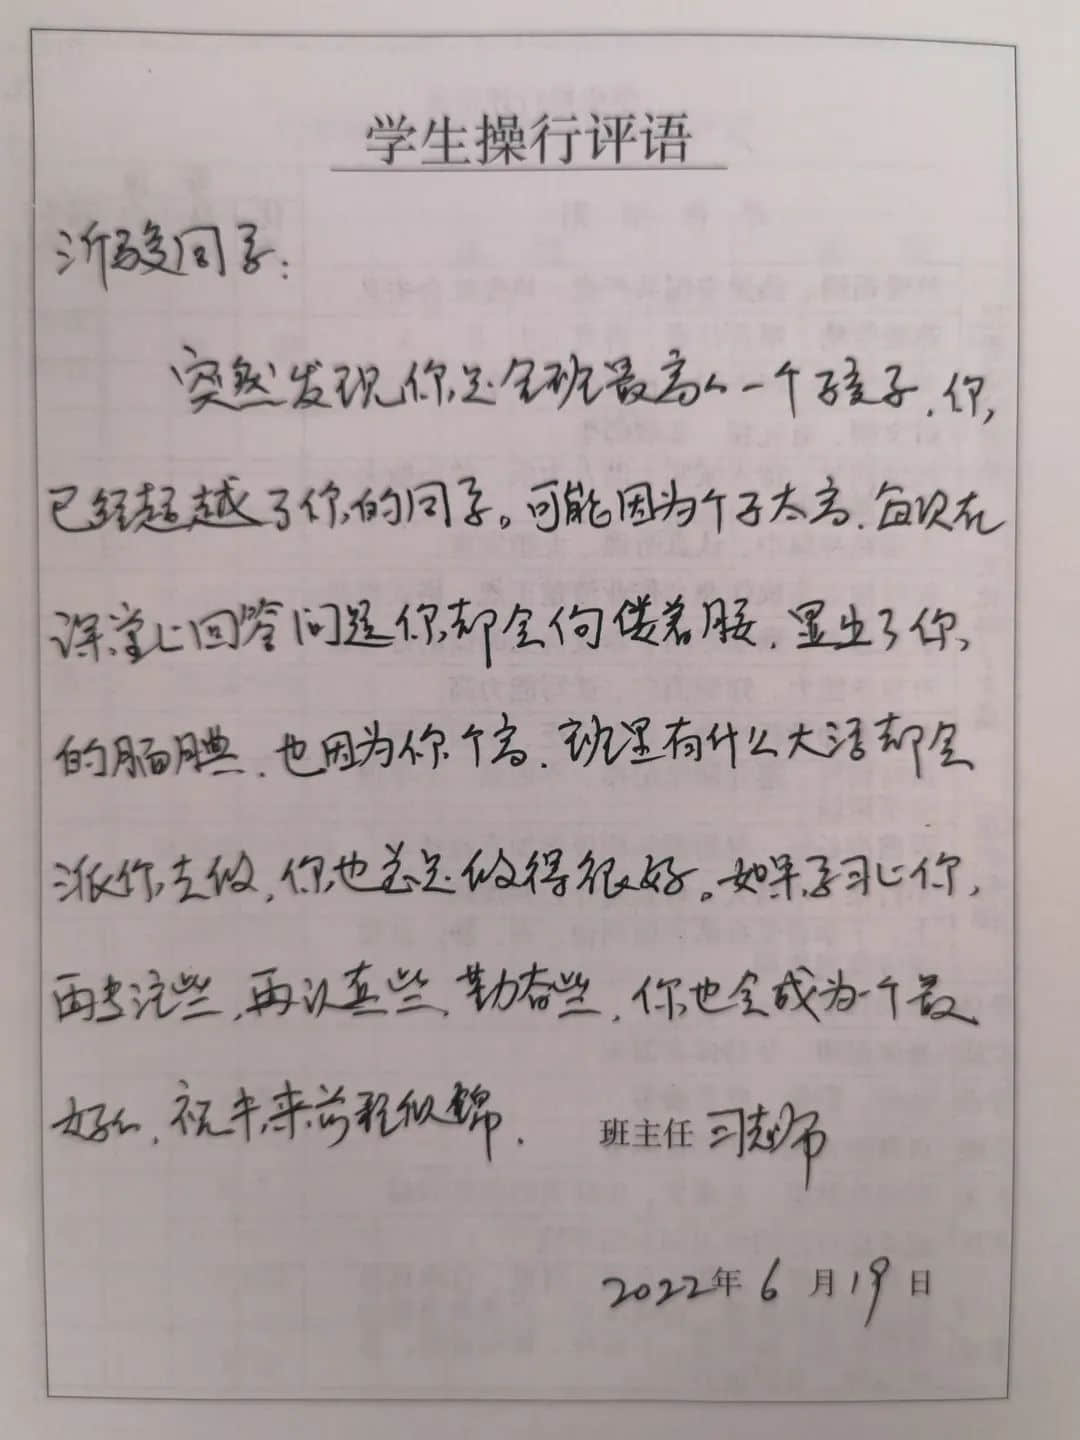 学生操行评语
沂骏同学：
突然发现你是全班最高的一个孩子，你
已经超越了你的同学。可能因为个子太高，每次在
课堂上回答问题你却会佝偻着腰，显出了你
的腼腆，也因为你个高，班里有什么大活却会
派你去做，你也总是做得很好。如果学习上你
再专注些，再认真些，勤奋些，你也会成为一个最
好的，祝未来前程似锦。
班主任 司老师
2022年6月19日